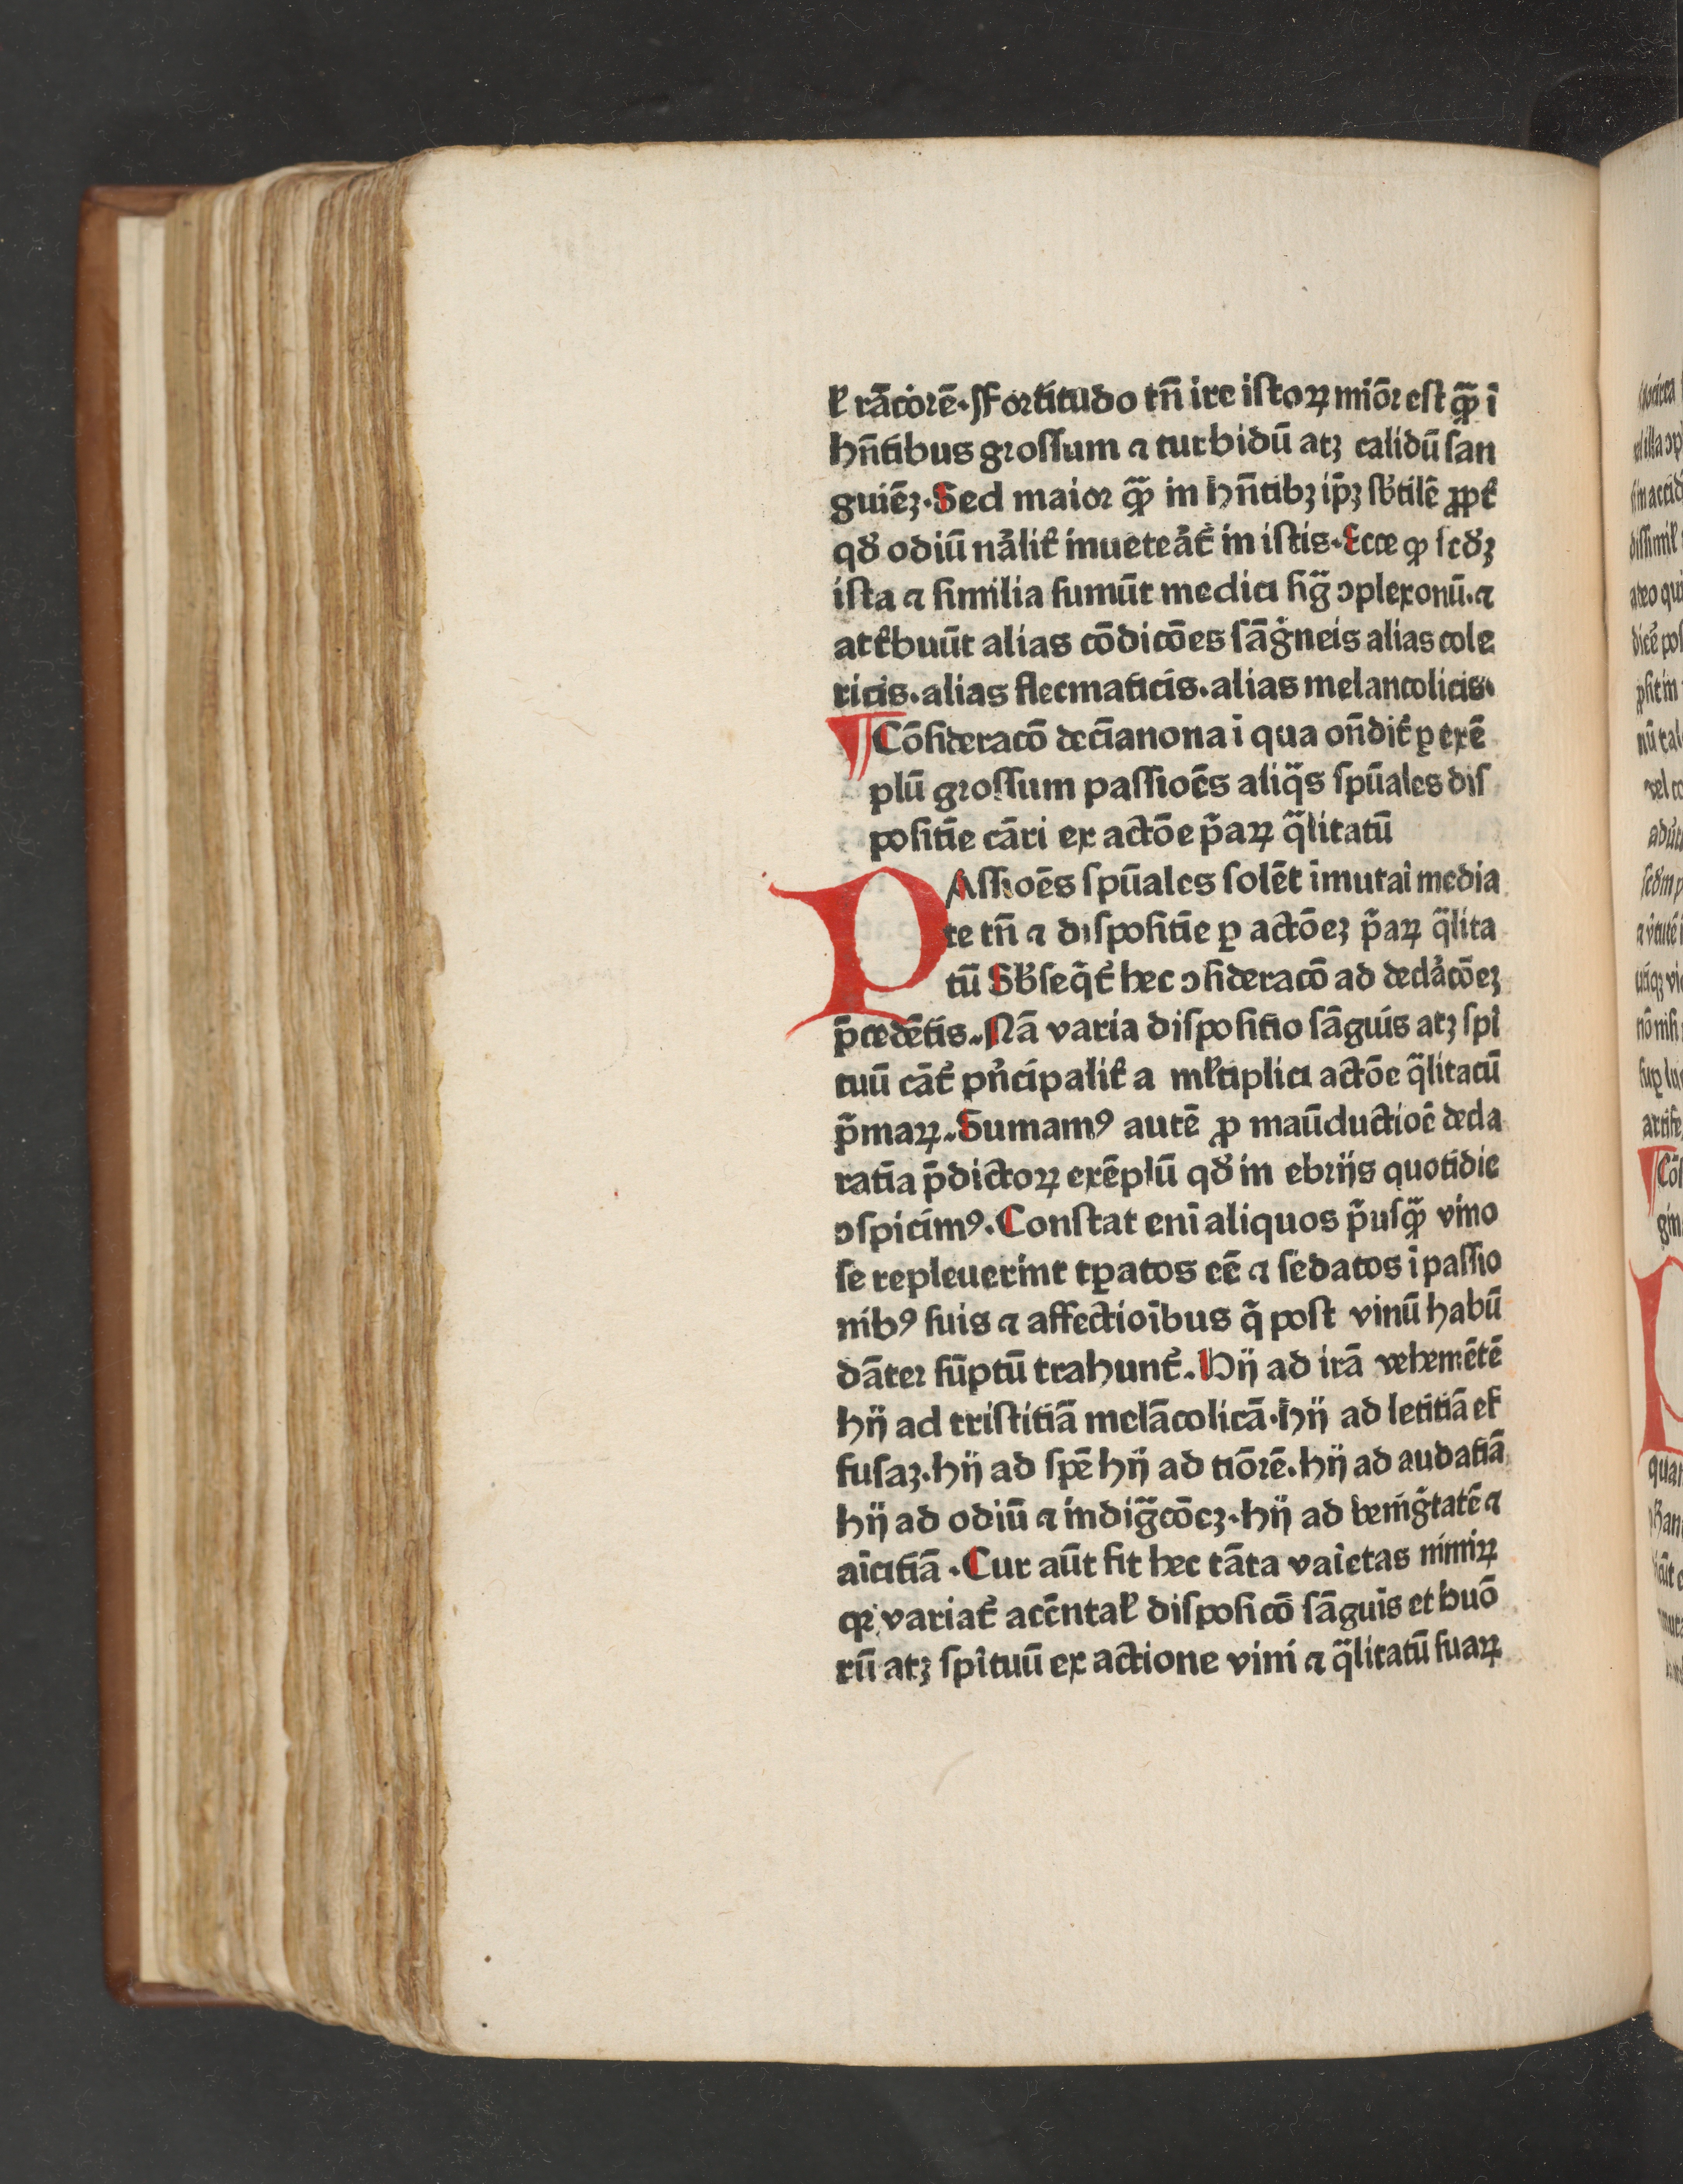 ł rãcorē. Fortitudo tñ ire istoꝝ miōr est ꝙ̃ ĩ
hñtibus grossum ⁊ turbidũ atꝫ calidũ san
guiēꝫ. Sed maior ꝙ̃ in hñtibꝫ ip̄ꝫ sb̓tilē ꝓpt̓
qđ odiũ nãlit̓ inueteãt̓ in istis. Ecce ꝙ scđꝫ
ista ⁊ similia sumũt medici sig̃ ↄplexonũ. ⁊
att̓buũt alias cõdicões sãg̓neis alias cole
ricis. alias flecmaticis. alias melancolicis.
¶ Cõsideracõ decĩanona ĩ qua oñdit̓ ꝑ exē
plũ grossum passioēs aliq̃s spũales dis
positiē cãri ex actõe p̃aꝝ q̃litatũ
PAssioēs spũales solēt ĩmutaĩ media
te tñ ⁊ dispositiē ꝑ actõeꝫ p̃aꝝ q̃lita
tũ Sb̓seq̃t̓ hec ↄsideracõ ad declãcõeꝫ
p̄cedētis. Nã varia dispositio sãguis atꝫ spĩ
tuũ cãt̓ pñcipalit̓ a młtiplici actõe q̃litatũ
p̃maꝝ. Sumamꝰ autē ꝓ maũductioē decla
ratĩa p̄dictoꝝ exēplũ qđ in ebrijs quotidie
ↄspicimꝰ. Constat enĩ aliquos p̃usꝙ̃ vino
se repleuerint tꝑatos eē ⁊ sedatos ĩ passio
nibꝰ suis ⁊ affectioĩbus q̃ post vinũ habũ
dãter sũptũ trahunt̓. Hij ad irã vehemētē
hij ad tristitiã melãcolicã. hij ad letitiã ef
fusaꝫ. hij ad spē hij ad tiõrē. hij ad audatiã
hij ad odiũ ⁊ indig̃cõeꝫ. hij ad benig̃tatē ⁊
aĩcitiã. Cur aũt fit hec tãta vaĩetas nimiꝝ
qꝛ variat̓ accñtał disposicõ sãguis et huõ
rũ atꝫ spĩtuũ ex actione vini ⁊ q̃litatũ suaꝝ